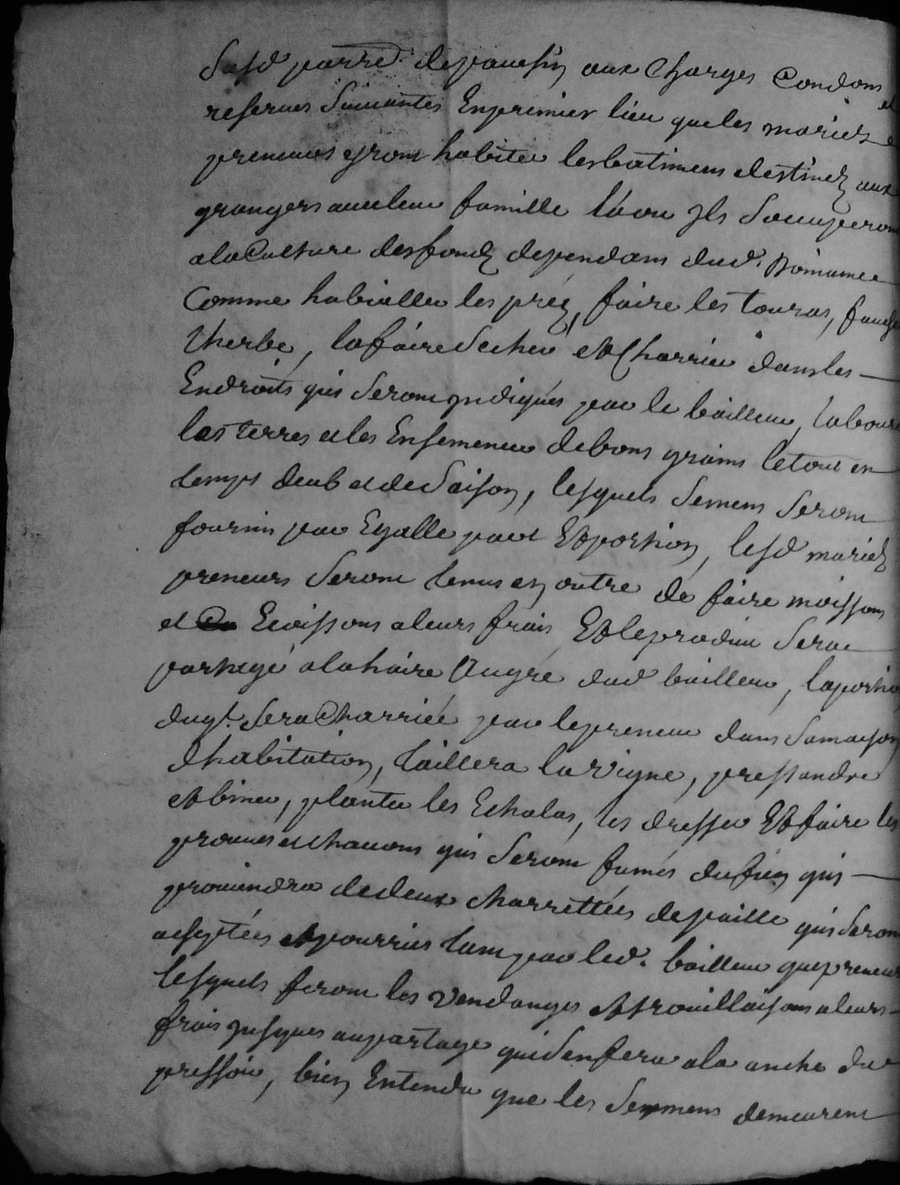 Susd parroe. depouesin aux Charges Condons et
reserves Suivantes Enprimier lieu queles mariez et
preneurs yront habiter lesbâtimens destinéz aux
grangers avecleur famille léou jls Soccuperont
ala Culture desfondz dependans dud. Domainee
Comme habialler les préz, faire les touras, faucher
l'herbe, lafaire Secher et Charrier dansles
Endroits qui Seront yndiqués par le bailleur, labourer
lesterres et les Ensemencer debons grains letout en
temps deub et de Saison, lesquels Semens Seront
fournis par Egalle part Et portion, lesd mariez
preneurs Seront tenus en outre de faire moissons
et Ecoissons aleurs frais Et leproduit Sera
partagé alahaire Augré dud bailleur, laportion
duqt. Sera Charriée par lepreneur dans Samaison
dhabitation, taillera lavigne, pressandre
et biner, planter les Echalas, les dresser Et faire les
provues et chavons qui Seront fumés dufien qui
proviendra dedeux charrettées depaille qui Seront
acheptées et pourries tant par led. bailleur quepreneur
lesquels feront les vendanges et trouillaisons aleurs
frais jusques aupartage quiSenfera ala anche du
pressoir, bien Entendu que les Semens demeurent